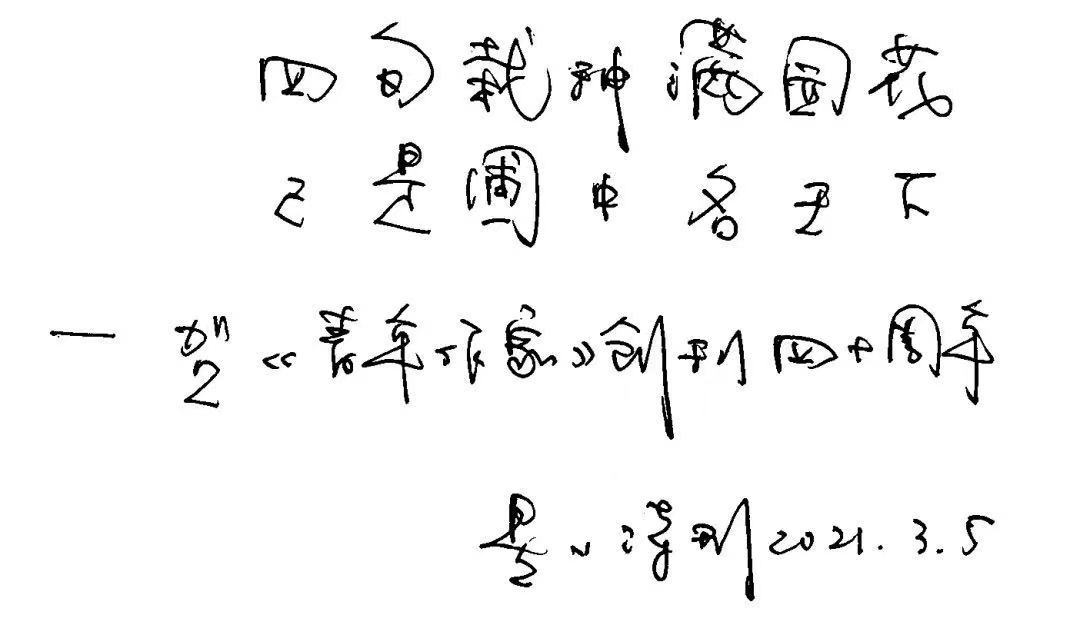 四旬栽种满园花
已是园中名天下
— 贺《青年作家》创刊四十周年
2021.3.5